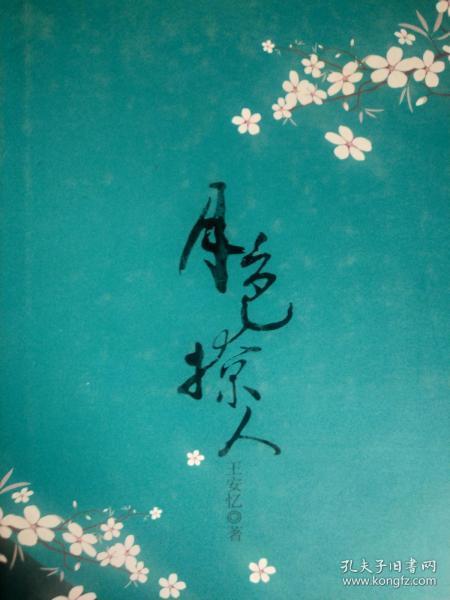 月色撩人
王安忆◎著
孔夫子旧书网
www.kongfz.com